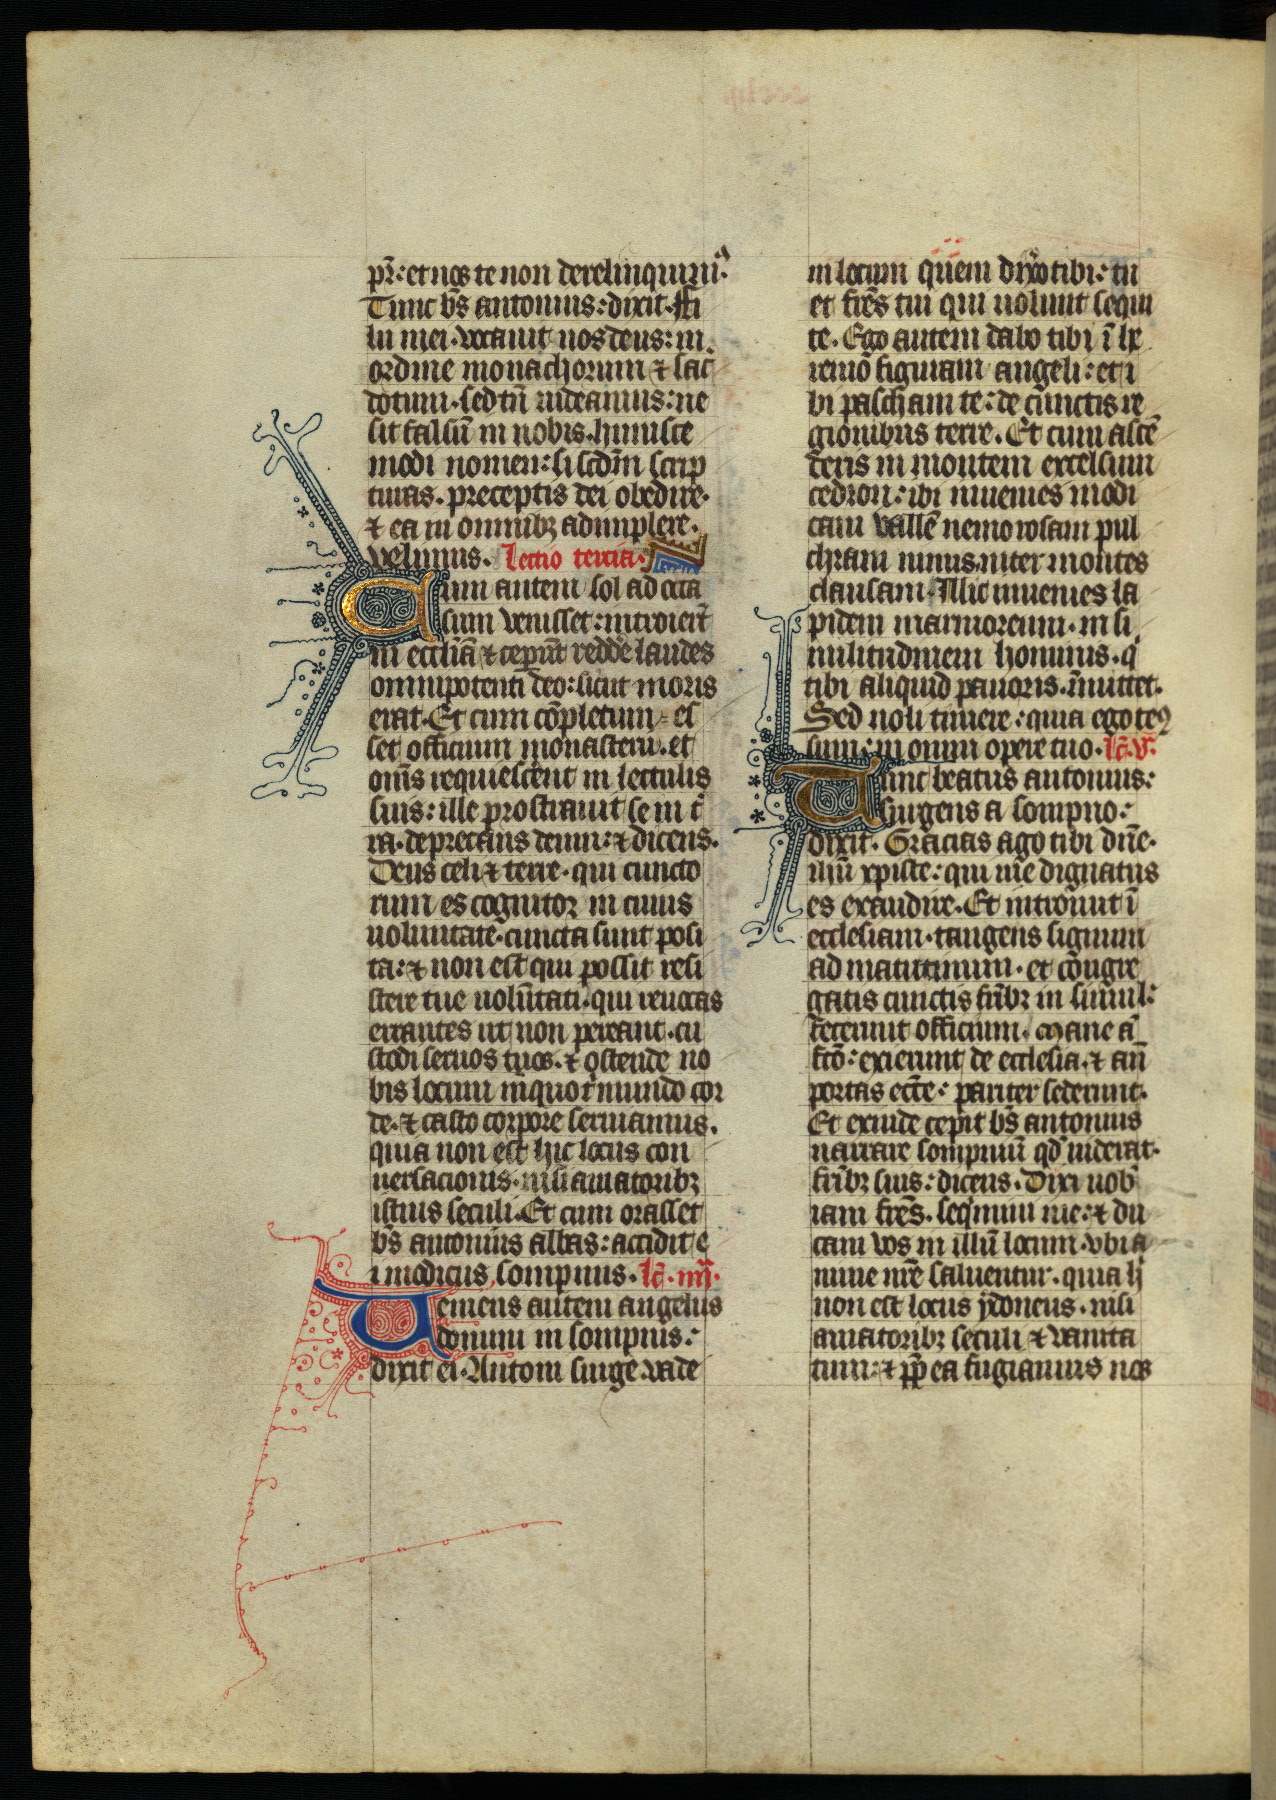 pr̄: et nos te non derelinquim͛.
Tunc bt̄s antonius: dixit. Fi
lii mei. vocauit nos deus: in
ordine monachorum ⁊ sac̄
dotum. sed tn̄ uideamus: ne
sit falsū in nobis. huiusce
modi nomen: si scdm̄ scrip
turas. preceptis dei obedire.
⁊ ea in omnibꝫ adimplere.
velimus. Lectio tercia.
Cum autem sol ad occa
sum venisset: introier̄t
in eccliā ⁊ ceperūt reddēe laudes
omnipotenti deo: sicut moris
erat. Et cum cōpletum es
set officium monasterii. et
oms̄ requiescerēt in lectulis
suis: ille prostrauit se in t͛
ra. deprecans deum: ⁊ dicens.
Deus celi ⁊ terre. qui cuncto
rum es cognitor in cuius
uoluntate. cuncta sunt posi
ta: ⁊ non est qui possit resi
stere tue uolūtati. qui reuocas
errantes ut non pereant. cu
stodi seruos tuos. ⁊ ostende no
bis locum in quo t͛ mundo cor
de. ⁊ casto corpore seruiamus.
quia non est hic locus con
uersacionis. nisi amatoribꝫ
istius seculi. Et cum orasset
bt̄s antonius abbas: accidit e
i modicus sompnus. lc̄. iiij.
Veniens autem angelus
domini in sompnis:
dixit ei. Antoni surge. vade
in locum quem dixo tibi: tu
et frēs tui qui uolunt sequi
te. Ego autem dabo tibi ī he
remo figuram angeli: et i
bi pascham te: de cūnctis re
gionibus terre. Et cum ascē
deris in montem excelsum
cedron: ibi inuenies modi
cam vallē nemorosam pul
chram nimis. inter montes
clausam. Illic inuenies la
pidem marmoreum. in si
militudinem hominis. q
tibi aliquid pauoris. īmittet.
Sed noli timere: quia ego tecꝯ
sum: in omni opere tuo. lc̄. v.
Tunc beatus antonius:
surgens a sompno:
dixit. Gracias ago tibi dn̄e.
ihū xpiste: qui me dignatus
es exaudire. Et introiuit ī
ecclesiam. tangens signum
ad matutinum. et cōngre
gatis cunctis frībꝫ in simul:
fecerunt officium. Mane aū
fc̄o: exierunt de ecclesia. ⁊ an̄
portas ecc̄e: pariter sederunt.
Et exinde cepit bt̄s antonius
narrare sompniū qd̄ uiderat.
frībꝫ suis: dicens. Dixi uob̄
iam frēs. seqimini me: ⁊ du
cam vos in illū locum. vbi a
nime nrē saluentur. quia h̄
non est locus ydoneus. nisi
amatoribꝫ seculi ⁊ vanita
tum: ⁊ ꝓp̄ ea fugiamus nos